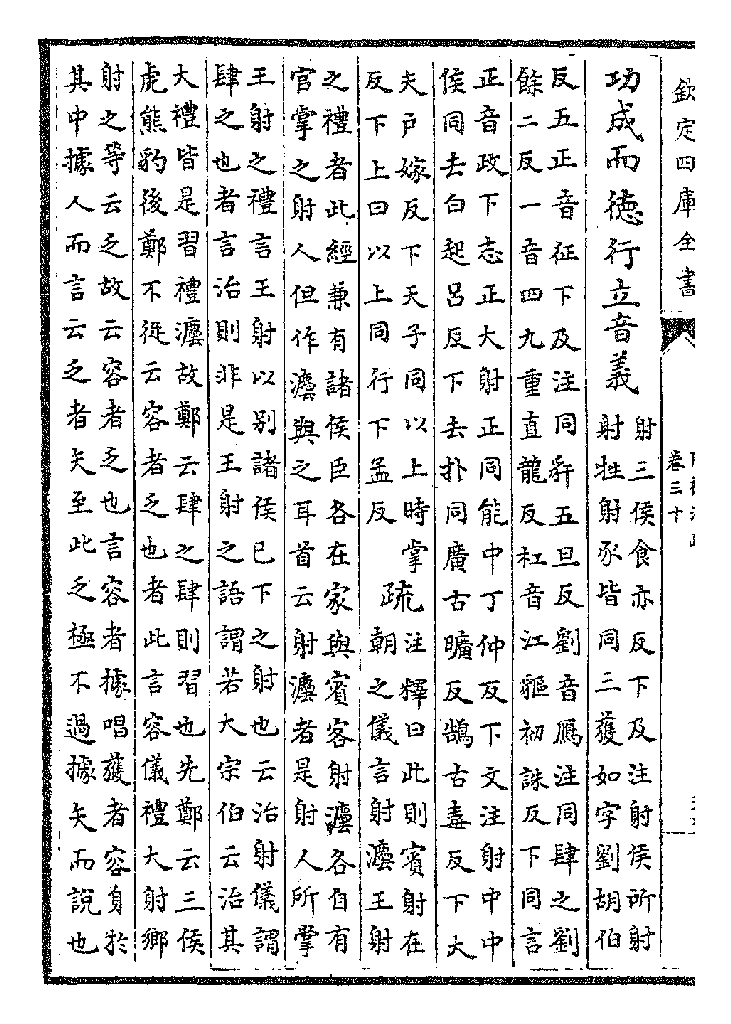 欽定四庫全書
卷三十
功成而德行立音義
射三侯食亦反下及注射侯所射
射牲射豕皆同三獲如字劉胡伯
反五正音征下及注同豻五旦反劉音鴈注同肆之劉
餘二反一音四九重直龍反杠音江貙初誅反下同言
正音政下志正大射正同能中丁仲反下文注射中中
侯同去白起呂反下去扑同廣古曠反鵠古毒反下大
夫戸嫁反下天子同以上時掌
反下上曰以上同行下孟反
疏
注釋曰此則賓射在
朝之儀言射灋王射
之禮者此經兼有諸侯臣各在家與賓客射灋各自有
官掌之射人但作灋與之耳首云射灋者是射人所掌
王射之禮言王射以别諸侯已下之射也云治射儀謂
肆之也者言治則非是王射之語謂若大宗伯云治其
大禮皆是習禮灋故鄭云肆之肆則習也先鄭云三侯
虎熊豹後鄭不從云容者乏也者此言容儀禮大射鄉
射之等云乏故云容者乏也言容者據唱獲者容身於
其中據人而言云乏者矢至此乏極不過據矢而說也